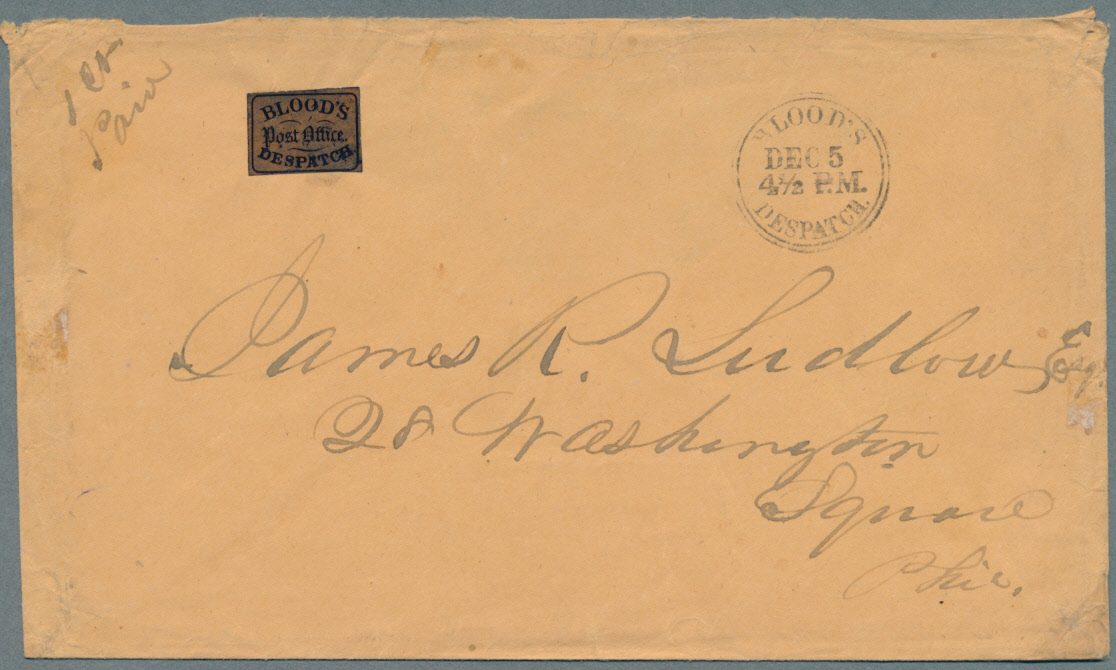 1 ct
Paid
BLOOD'S
Post Office
DESPATCH
BLOOD'S
DEC 5
4½ P.M.
DESPATCH.
James R. Ludlow Esq.
28 Washington
Square
Phia.